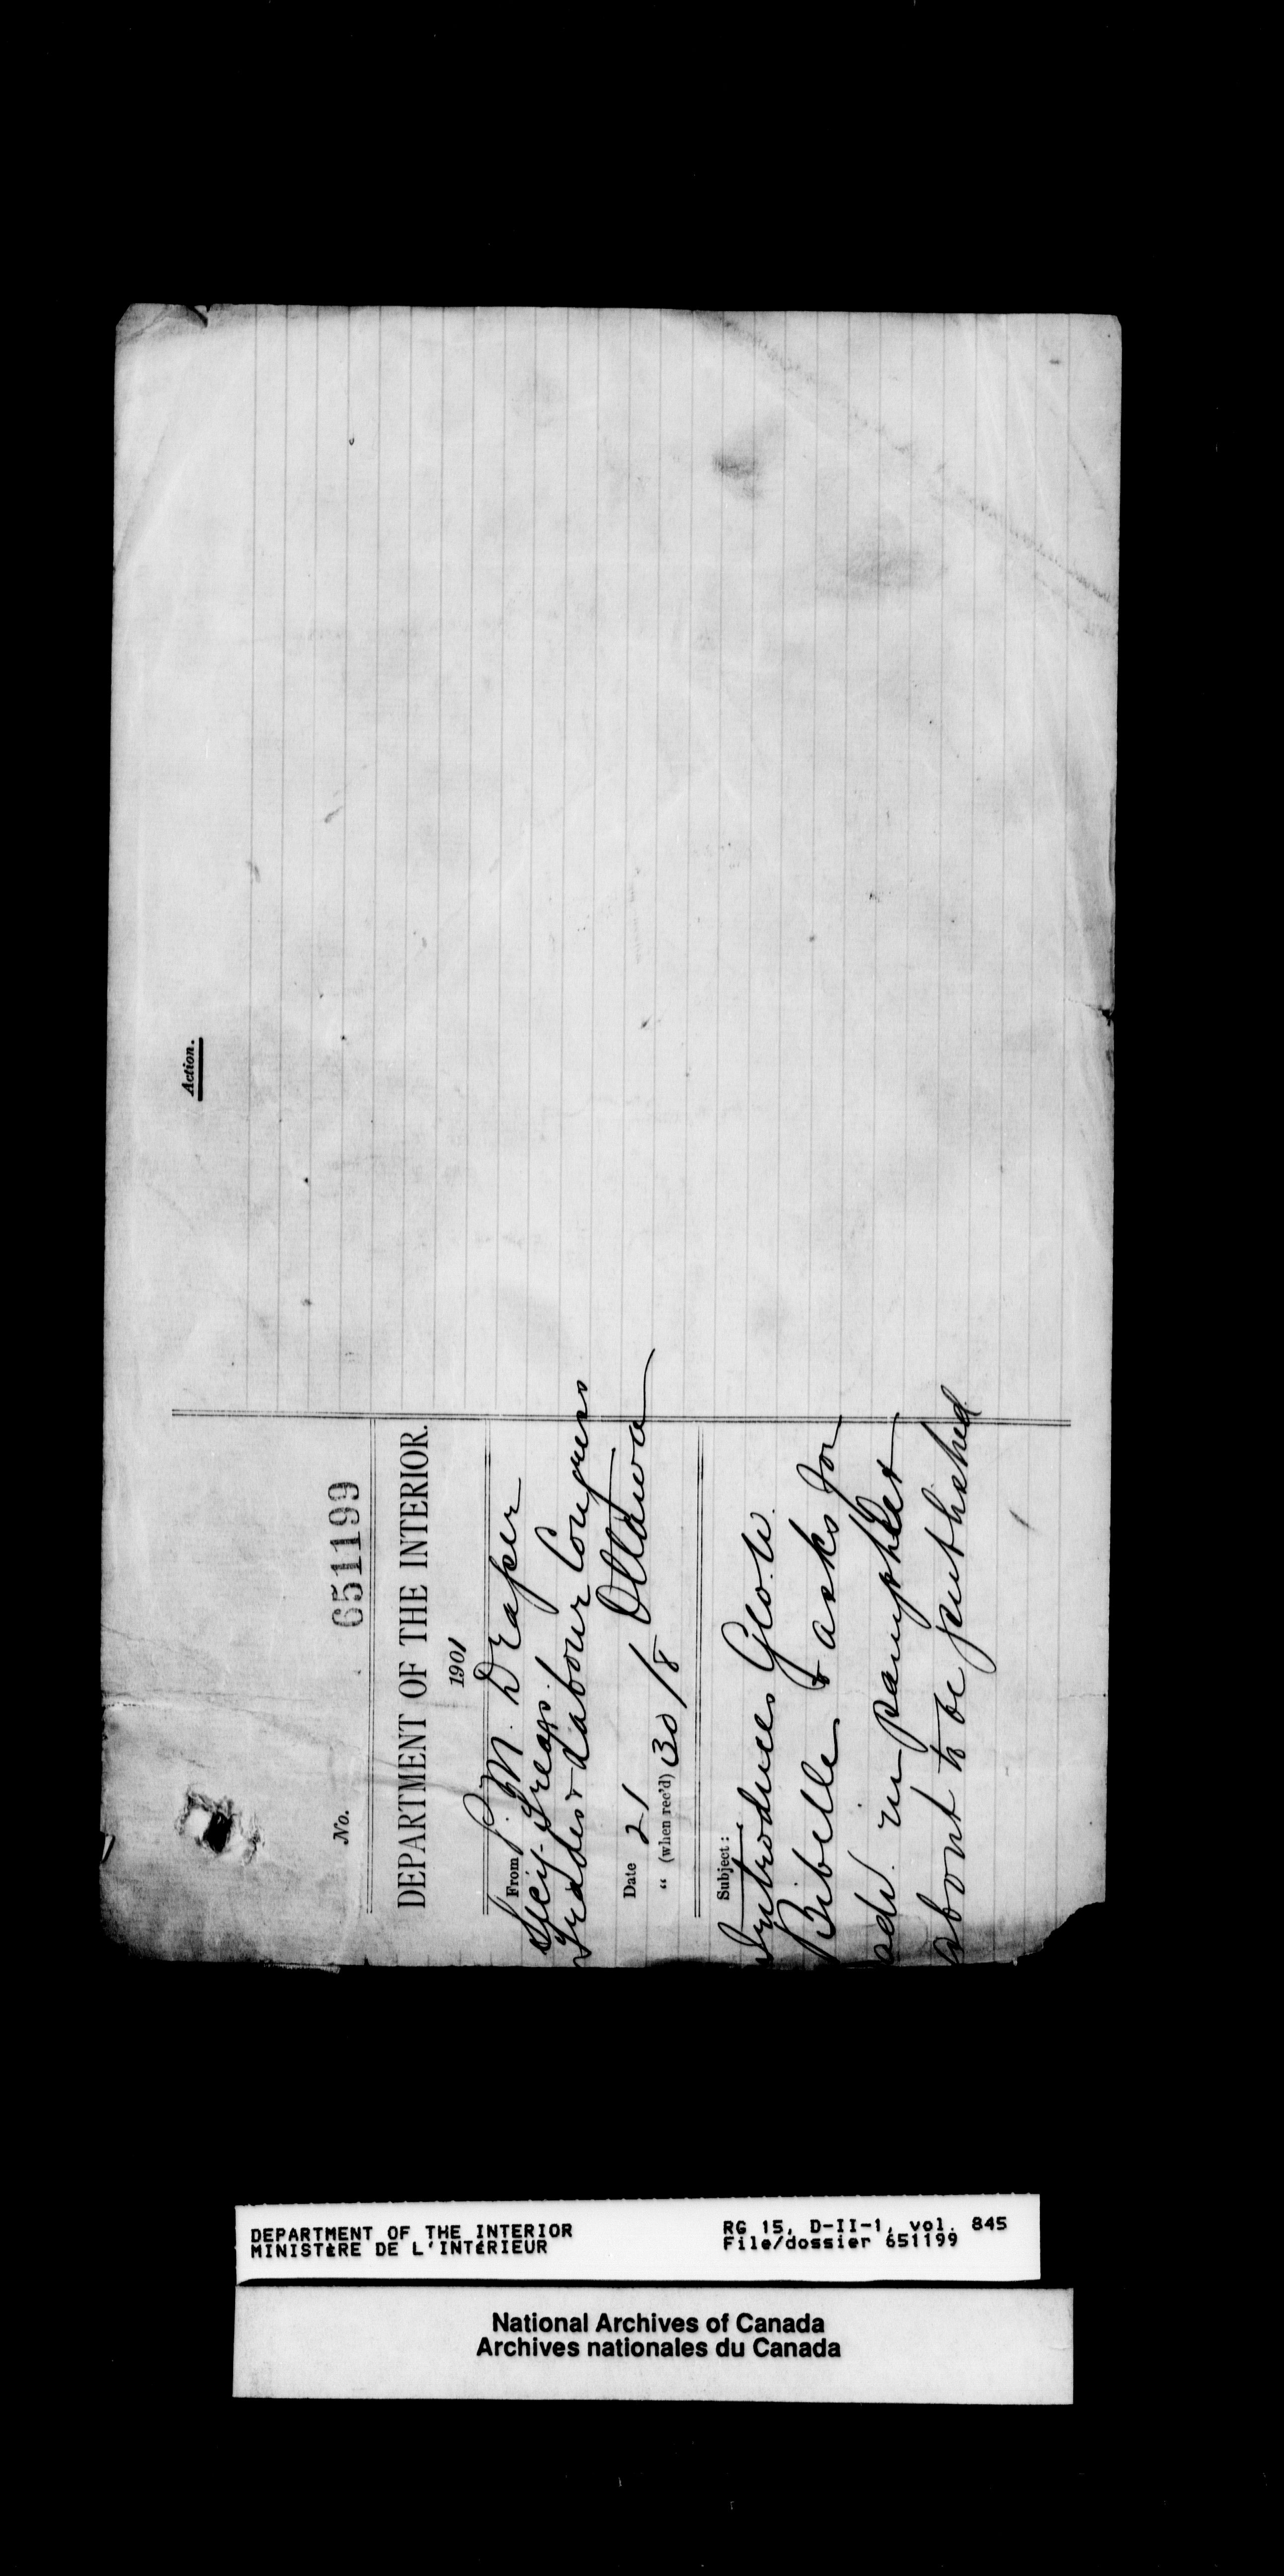 Action.
No. 651199
DEPARTMENT OF THE INTERIOR.
1901
From P. M. Draper
Secy-Treas.
Trades & Labour Congress
Date 21 Ottawa
" (when rec'd) 30/8
Subject:
Introduces Geo. W.
Bibelle & asks for
adv. in pamphlet
about to be published
DEPARTMENT OF THE INTERIOR
MINISTèRE DE L'INTéRIEUR
RG 15, D-II-1, vol. 845
File/dossier 651199
National Archives of Canada
Archives nationales du Canada